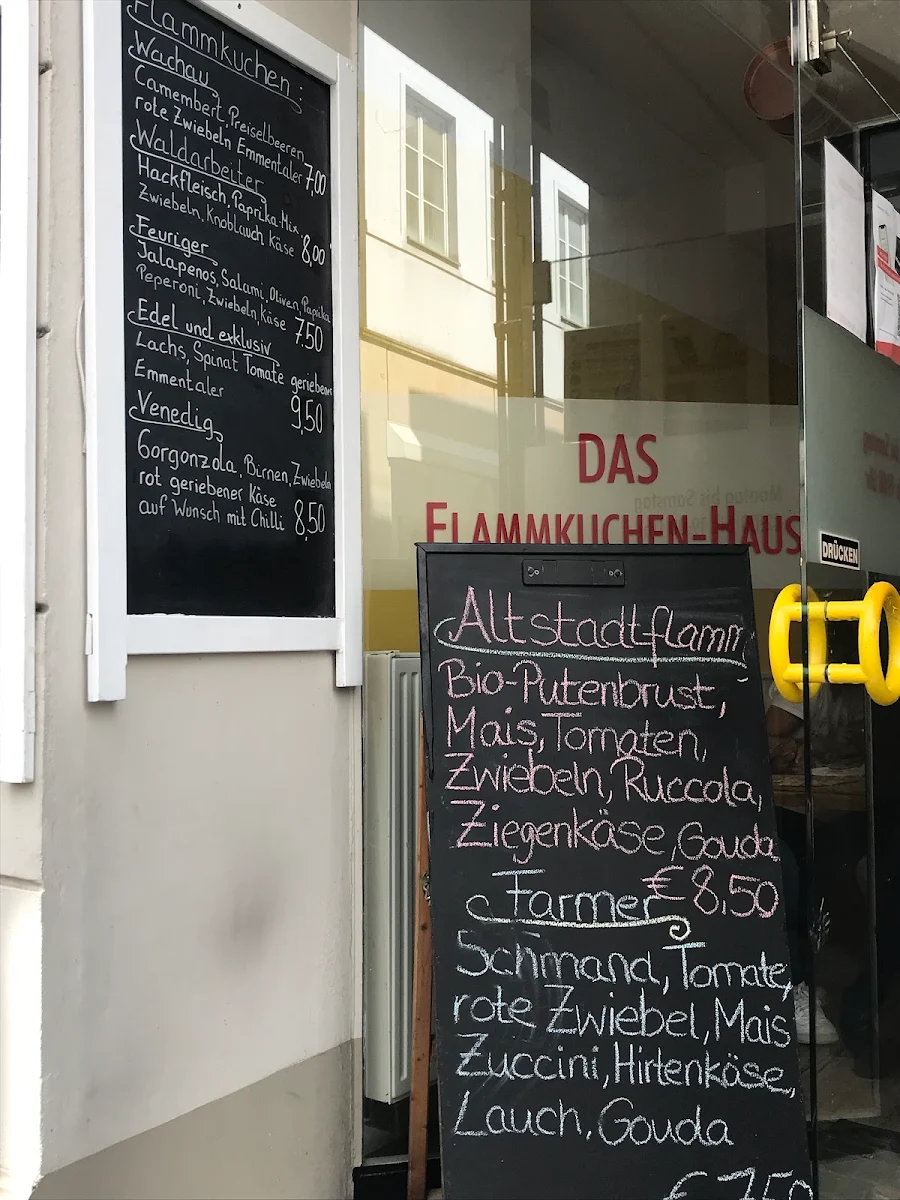 Flammkuchen:
Wachau
Camembert, Preiselbeeren
rote Zwiebeln Emmentaler 7,00
Waldarbeiter
Hackfleisch, Paprika-Mix
Zwiebeln, Knoblauch, Käse 8,00
Feuriger
Jalapenos, Salami, Oliven, Paprika
Peperoni, Zwiebeln, Käse 7,50
Edel und exklusiv
Lachs, Spinat Tomate geriebener
Emmentaler 9,50
Venedig
Gorgonzola, Birnen, Zwiebeln
rot geriebener Käse
auf Wunsch mit Chilli 8,50
DAS
FLAMMKUCHEN-HAUS
DRÜCKEN
Altstadt-flamm
Bio-Putenbrust,
Mais, Tomaten,
Zwiebeln, Ruccola,
Ziegenkäse, Gouda
€ 8,50
Farmer
Schmand, Tomate,
rote Zwiebel, Mais
Zuccini, Hirtenkäse,
Lauch, Gouda
€ 7,50